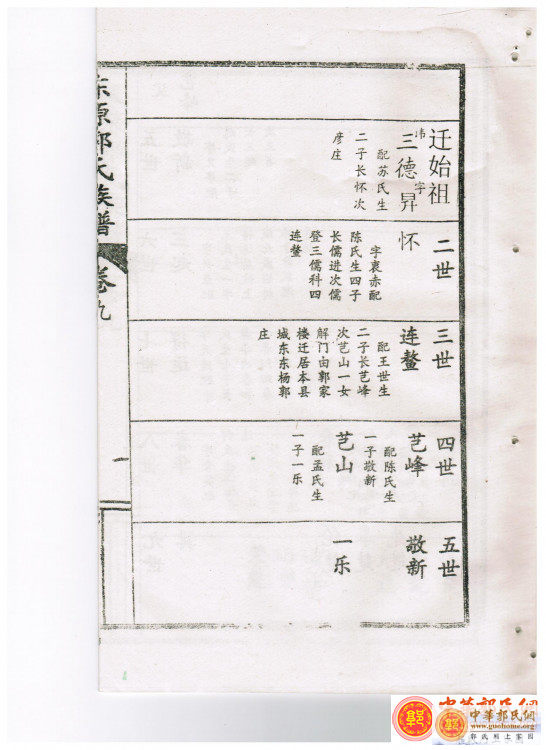 迁始祖
讳三字德昇
配苏氏生
二子长怀次
彦庄
二世
怀
字衷赤配
陈氏生四子
长儒进次儒
登三儒科四
连鳌
三世
连鳌
配王世生
二子长芑峰
次芑山一女
解门由郭家
楼迁居本县
城东东杨郭
庄
四世
芑峰
配陈氏生
一子敬新
芑山
配孟氏生
一子一乐
五世
敬新
一乐
东原郭氏族谱
卷九
一
中华郭氏网
中華郭氏網
www.guohome.com
郭氏网上家园